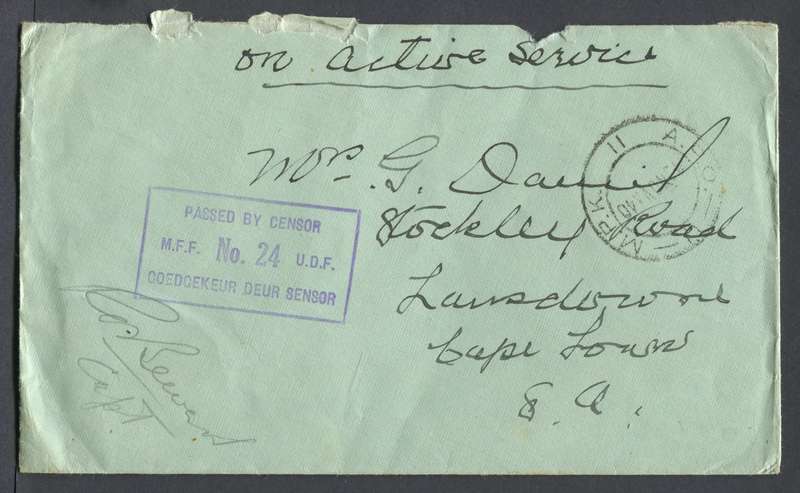 on active service
Mrs. G. Daniel
Stockley Road
Lansdowne
Cape Town
S. A.
PASSED BY CENSOR
M.F.F. No. 24 U.D.F.
GOEDGEKEUR DEUR SENSOR
Capt.
M.P.K. 11 A.P.O.